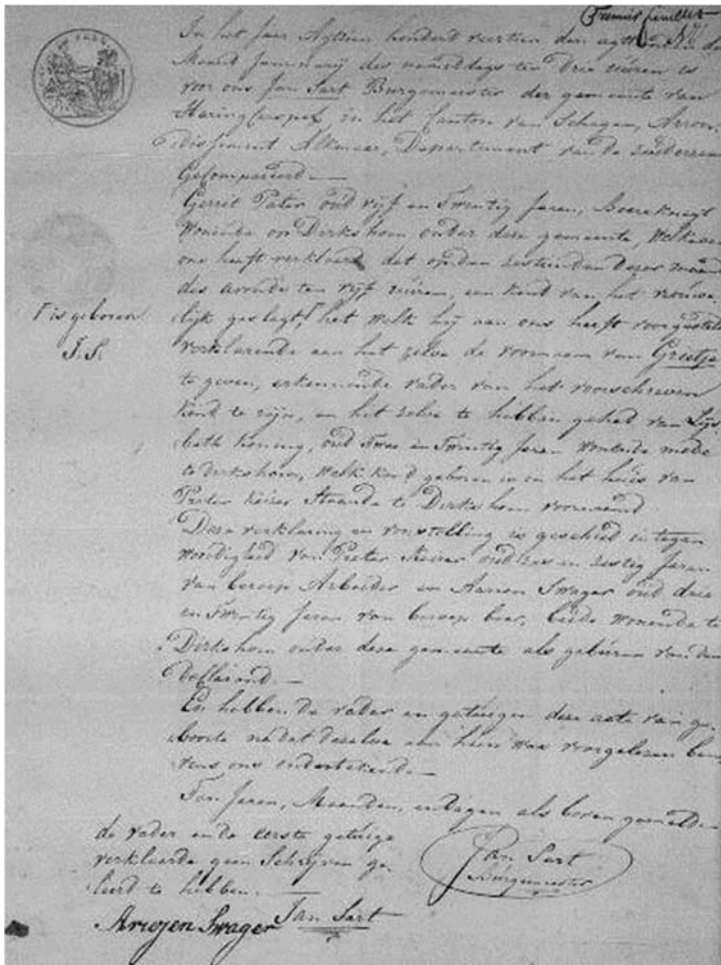 Premier feuillet
In het Jaar Agttien honderd veertien den agttienden de
Maand Januarij des namiddags ten drie uuren is
voor ons Jan Sart Burgemeester der gemeente van
Haringcarspel, in het Canton van Schagen, Arron
dissement Alkmaar, Departement van de Zuiderzee
Gecompareerd
Gerrit Pater oud vijf en Twintig Jaren, Boereknegt
Wonende on Dirkshorn onder deze gemeente, Welke aan
ons heeft verklaard dat op den zestienden dezer maand
des avonds ten vijf uuren, een kind van het vrouwe
lijk geslagt, het Welk hij aan ons heeft voorgesteld
is geboren
J. S.
verklarende aan het zelve de voornaam van Grietje
te geven, erkennende vader van het voorschreven
kind te zijn, en het zelve te hebben gehad van Lijs
beth Koning, oud Twee en Twintig Jaren Wonende mede
te dirkshorn, Welk kind geboren is in het huis van
Pieter Keizer Staande te Dirkshorn voornoemd
Deze verklaring en voorstelling is geschied in tegen
woordigheid van Pieter Keizer oud zes en zestig Jaren
van beroep Arbeider en Arien Swager oud drie
en Twentig Jaren van beroep boer, beide wonende te
Dirkshorn onder deze gemeente als gebuuren van den
declarand.
En hebben de vader en getuigen deze acte van ge
boorte nadat dezelve aan hun was voorgelezen bene
vens ons ondertekend
Ten Jaren, Maanden, en dagen als boven gemeld
de vader en de eerste getuige
verklaarde geen Schrijven ge
leerd te hebben.
Jan Sart
Burgemeester
Jan Sart
Ariejen Swager